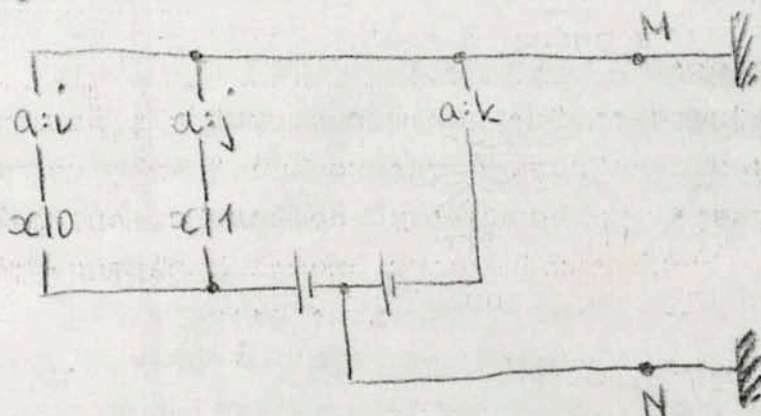 M
a:i a:j a:k
x10 x11
N